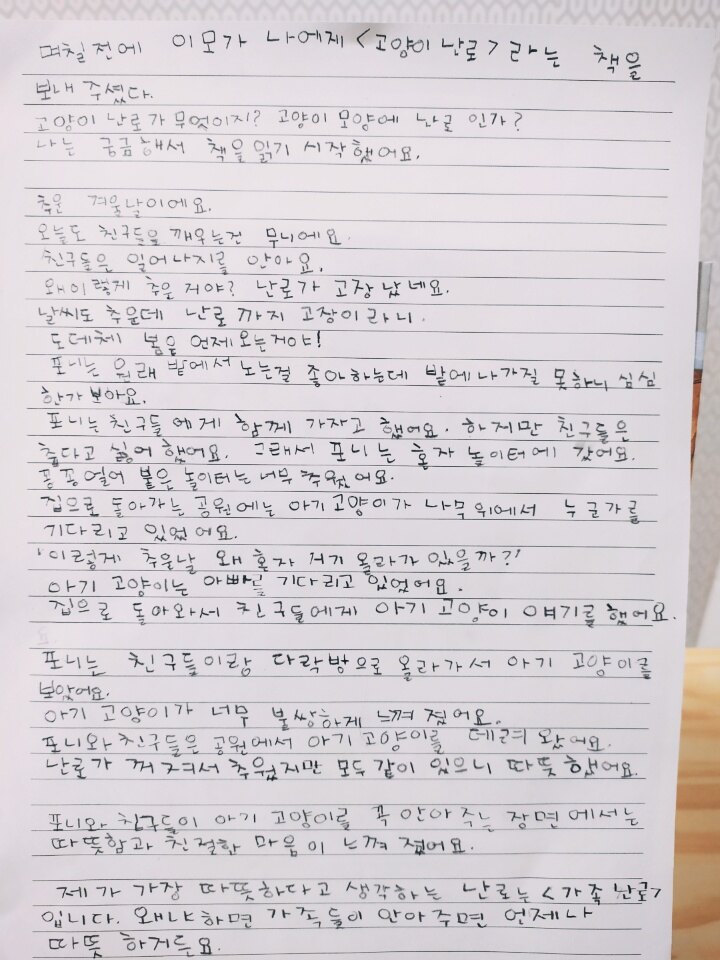 며칠전에 이모가 나에게 <고양이 난로> 라는 책을
보내 주셨다.
고양이 난로가 무엇이지? 고양이 모양에 난로 인가?
나는 궁금해서 책을 읽기 시작했어요.
추운 겨울날이에요.
오늘도 친구들을 깨우는건 무니에요.
친구들은 일어나지를 안아요.
왜이렇게 추운 거야? 난로가 고장 났네요.
날씨도 추운데 난로 까지 고장이라니.
도데체 봄은 언제오는거야!
포니는 원래 밭에서 노는걸 좋아하는데 밭에나가질 못하니 심심
한가 보아요.
포니는 친구들 에게 함께 가자고 했어요. 하지만 친구들은
춥다고 싫어 했어요. 그래서 포니는 혼자 놀이터에 갔어요.
꽁꽁 얼어 붙은 놀이터는 너무 추웠어요.
집으로 돌아가는 공원에는 아기고양이가 나무위에서 누군가를
기다리고 있었어요.
'이렇게 추운날 왜 혼자 저기 올라가 있을까?'
아기 고양이는 아빠를 기다리고 있었어요.
집으로 돌아와서 친구들에게 아기 고양이 얘기를 했어요.
포니는 친구들이랑 다락방으로 올라가서 아기 고양이를
보았어요.
아기 고양이가 너무 불쌍하게 느껴 졌어요.
포니와 친구들은 공원에서 아기 고양이를 데려 왔어요.
난로가 꺼져서 추웠지만 모두 같이 있으니 따뜻했어요.
포니와 친구들이 아기 고양이를 꼭 안아 주는 장면 에서는
따뜻함과 친절한 마음이 느껴 졌어요.
제가 가장 따뜻하다고 생각하는 난로는 <가족 난로>
입니다. 왜냐하면 가족들이 안아주면 언제나
따뜻 하거든요.